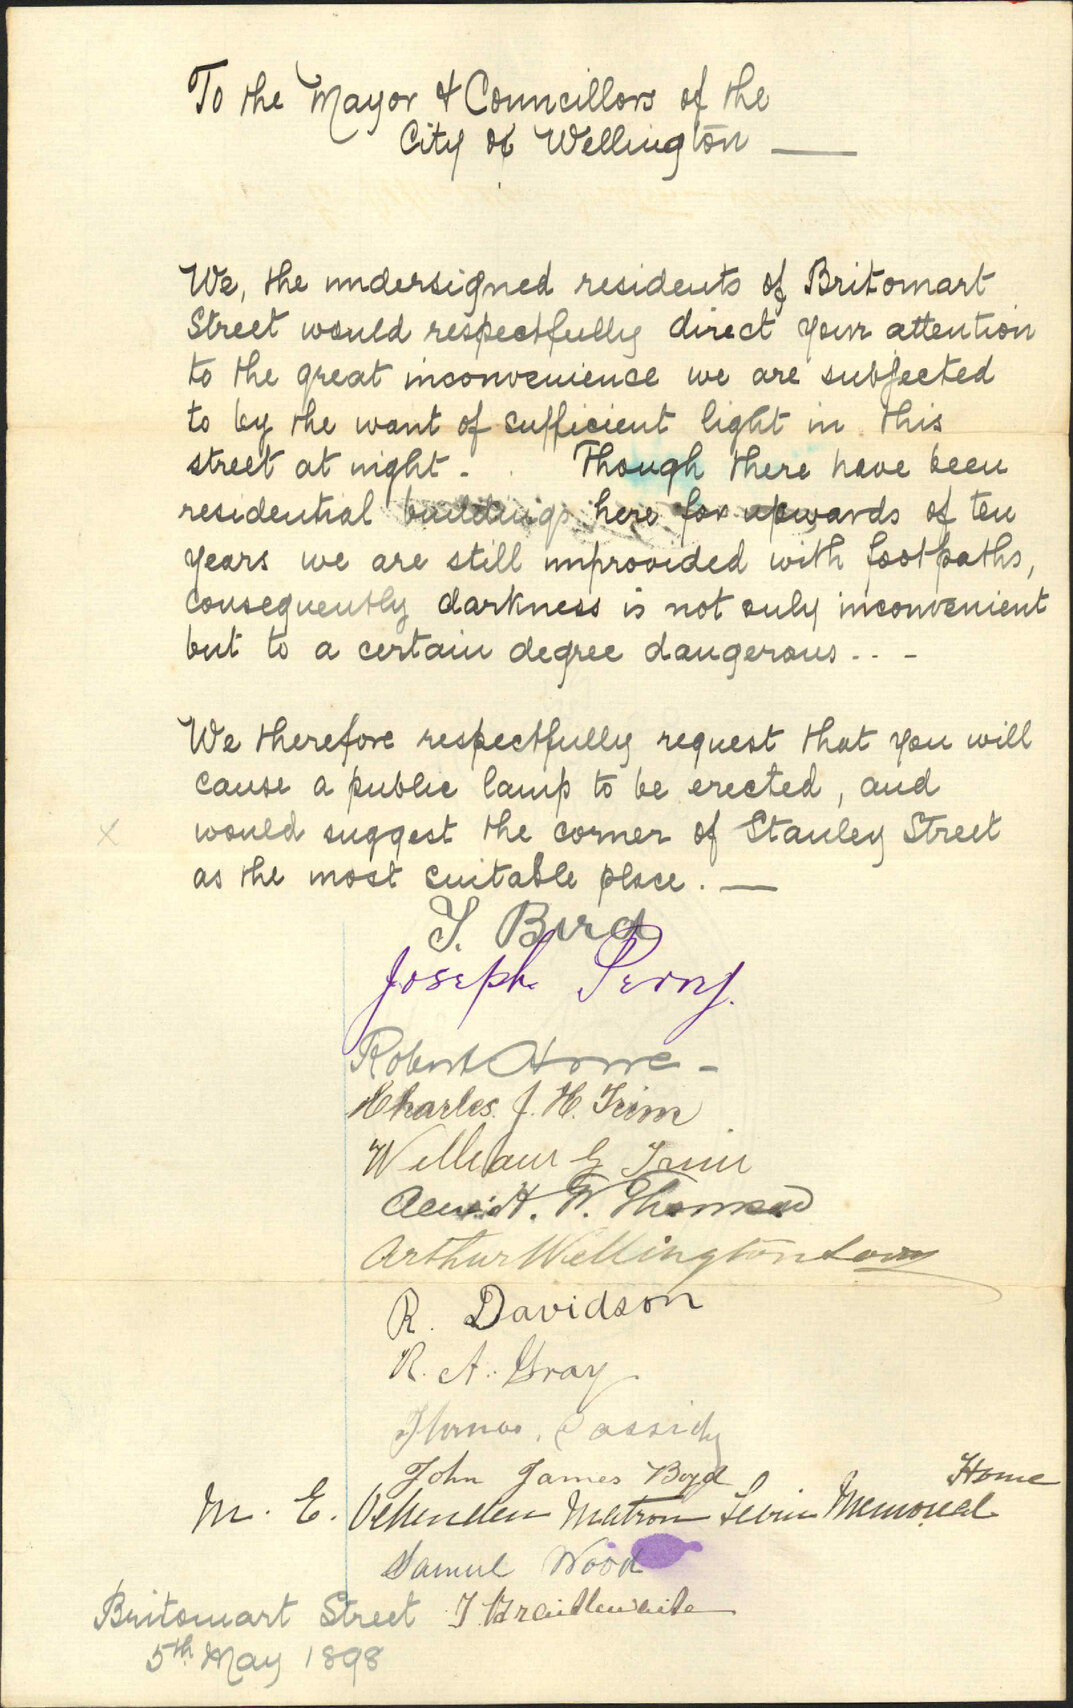 To the Mayor & Councillors of the
City of Wellington
We, the undersigned residents of Britomart
Street would respectfully direct your attention
to the great inconvenience we are subjected
to by the want of sufficient light in this
street at night. Though there have been
residential buildings here for upwards of ten
years we are still unprovided with footpaths,
consequently darkness is not only inconvenient
but to a certain degree dangerous
We therefore respectfully request that you will
cause a public lamp to be erected, and
would suggest the corner of Stanley Street
as the most suitable place.
T. Bird
Joseph Perry.
Robert Howe
Charles. J. H. Trim
William G Trim
H. W. Thomson
Arthur Wellington
R. Davidson
R. A. Gray
Thomas. Cassidy
John James Boyd
Home
M. E. Matron Levin Memorial
Samul Wood
Britomart Street T. Braithwaite
5th May 1898